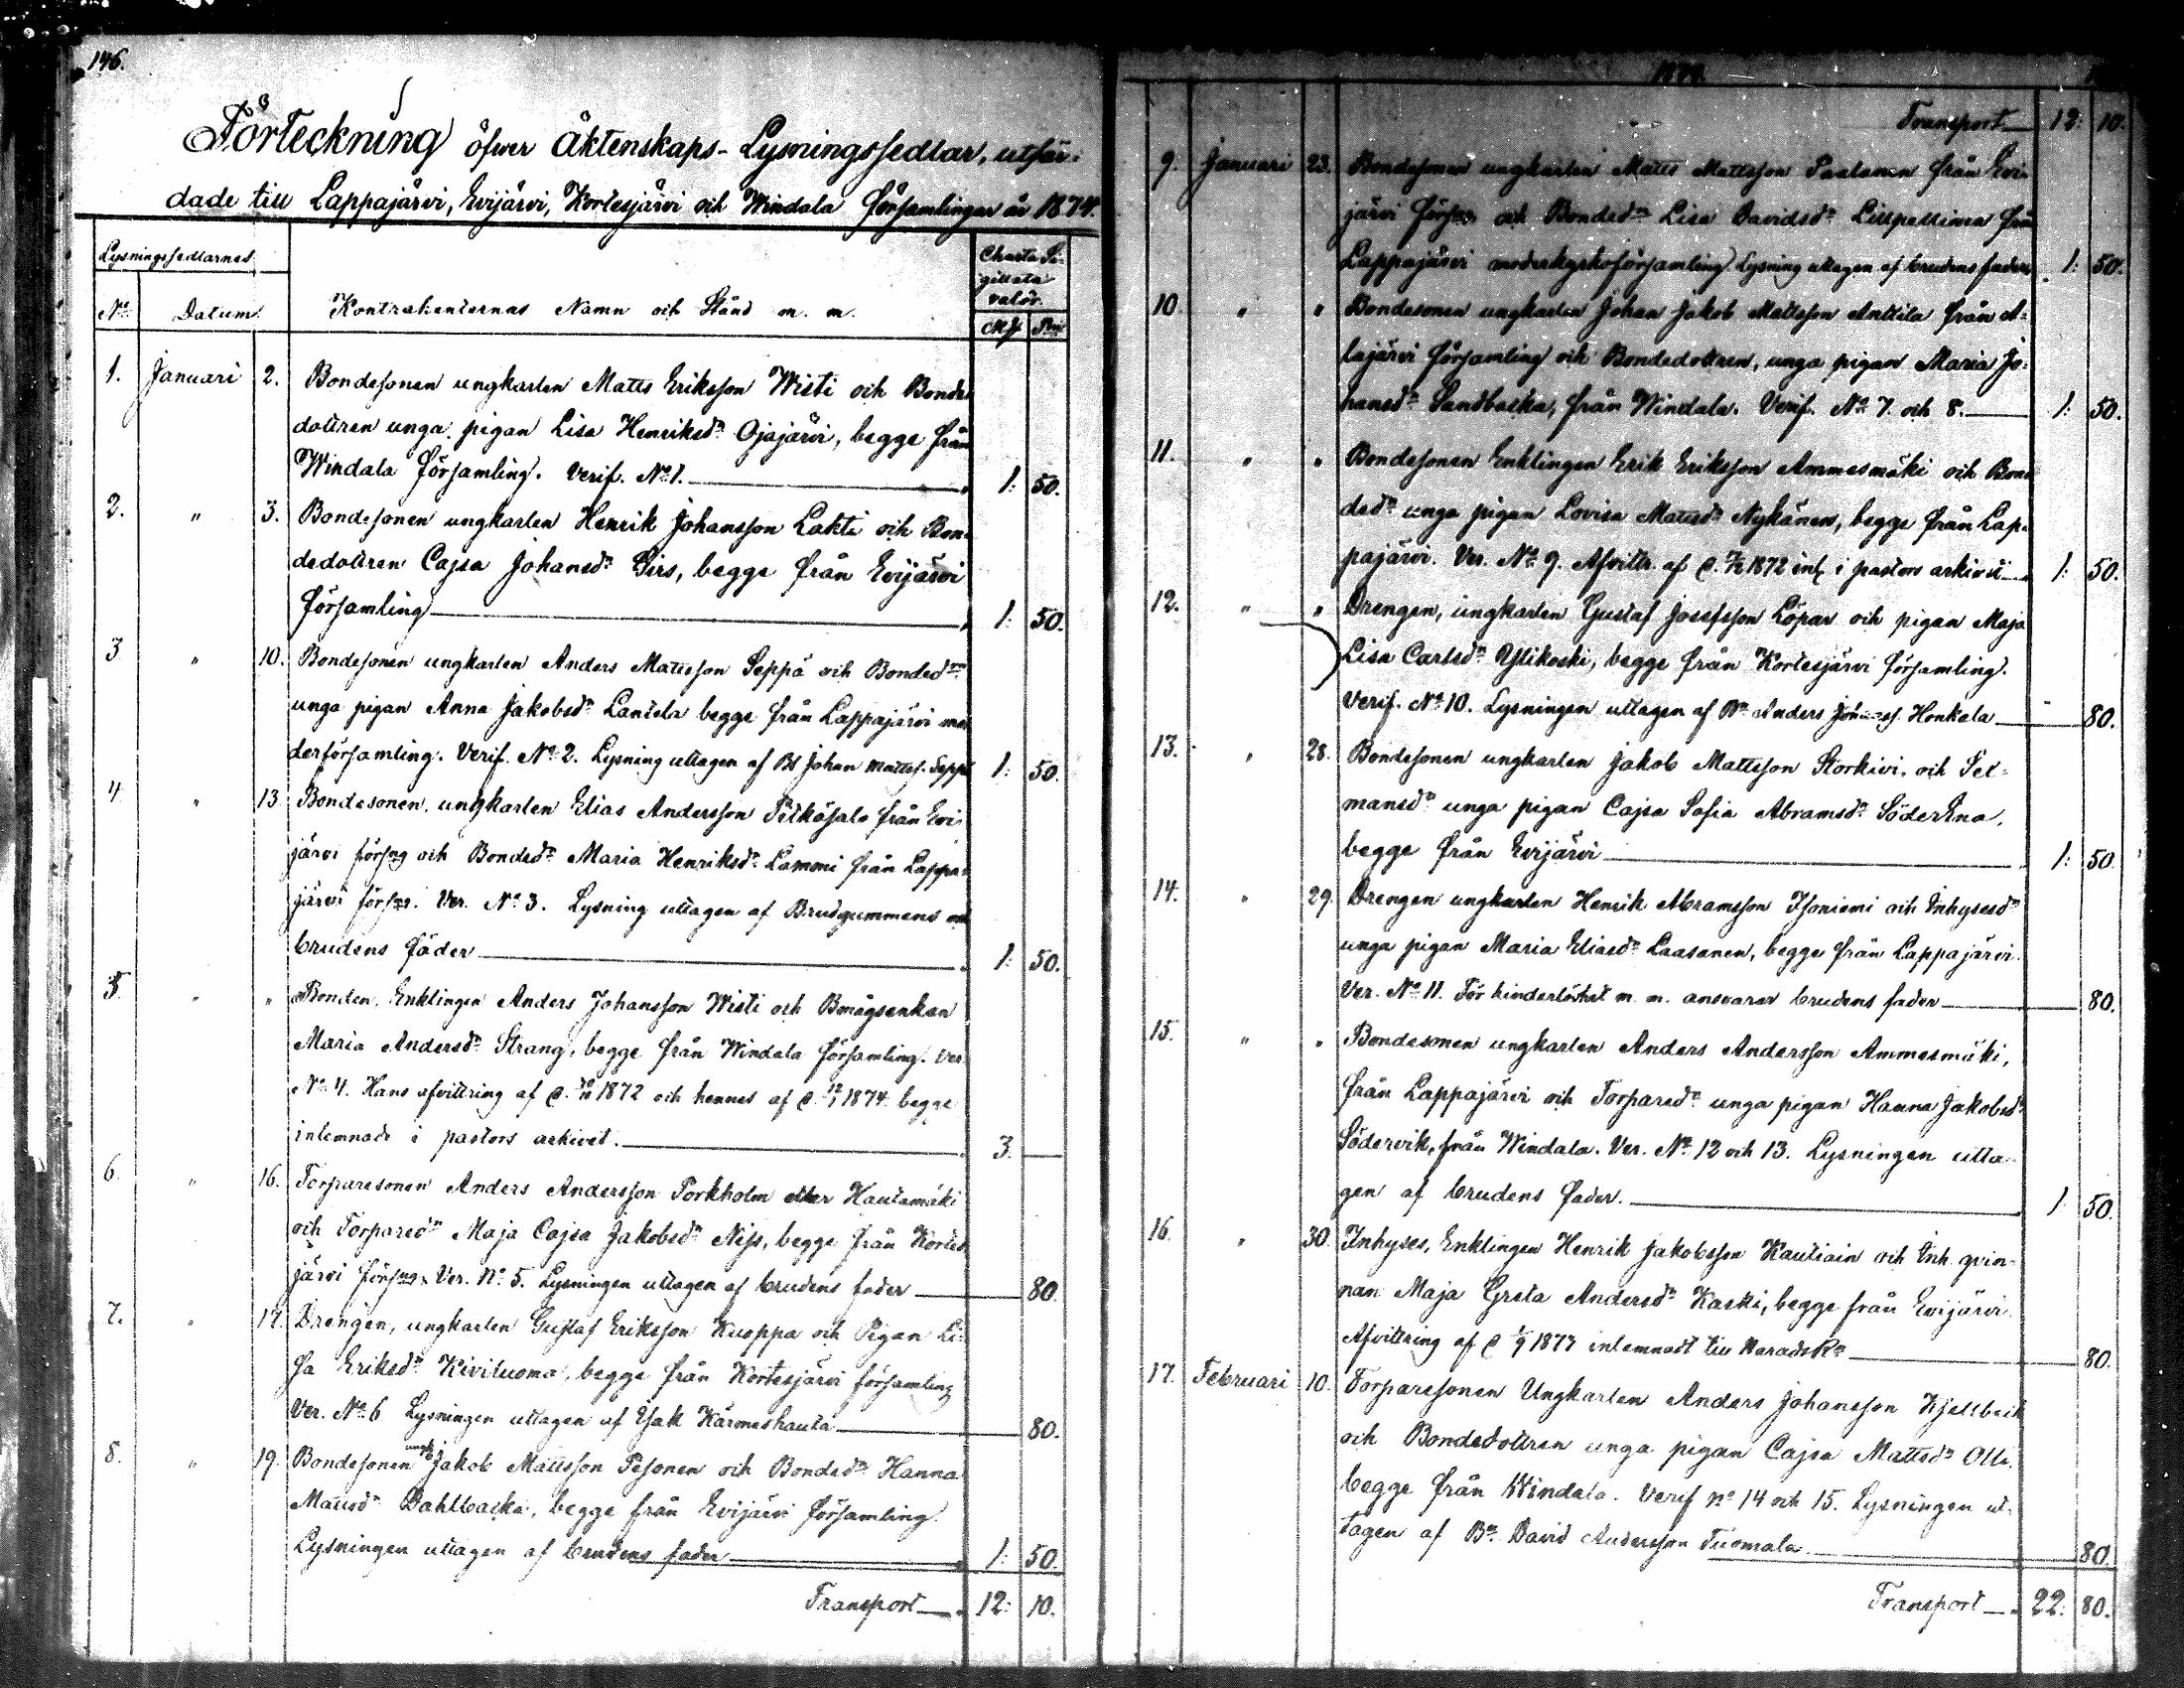 146.
Förteckning öfwer Äktenskaps-Lysningssedlar, utfär-
dade till Lappajärvi, Evijärvi, Kortesjärvi och Windala församlingar år 1874.
Lysningssedlarnes
Charta Si-
gillata
valör.
No Datum. Kontrahenternas Namn och Stånd m. m. Mk Pni
1. Januari 2. Bondesonen ungkarlen Matts Eriksson Wisti och Bonde
dottren unga pigan Lisa Henriksdr Ojajärvi, begge från
Windala församling. Verif. No 1. 1: 50.
2. " 3. Bondesonen ungkarlen Henrik Johansson Lahti och Bon-
dedottren Cajsa Johansdr Sirs, begge från Evijärvi
församling 1: 50.
3 " 10. Bondesonen ungkarlen Anders Mattsson Seppä och Bondedr
unga pigan Anna Jakobsdr Lantela begge från Lappajärvi mo
derförsamling. Verif. No 2. Lysning uttagen af Bd Johan Mattss. Seppä 1: 50.
4 " 13. Bondesonen, ungkarlen Elias Andersson Pitkäsalo från Evi-
järvi förs:ng och Bondedr Maria Henriksdr Lammi från Lappa-
järvi förs:ng. Ver. No 3. Lysning uttagen af Brudgummens och
brudens fäder 1: 50.
5. " " Bonden, Enklingen Anders Johansson Wisti och Bmågsenkan
Maria Andersdr Strang, begge från Windala församling. Ver.
No 4. Hans afvittring af d. 1872 och hennes af d. 1874 begge
inlemnade i pastors arkivet. 3. —
6. " 16. Torparesonen Anders Andersson Porkholm eller Hautamäki
och Torparedr Maja Cajsa Jakobsdr Nijs, begge från Kortes
järvi förs:ng. Ver. No 5. Lysningen uttagen af brudens fader 80.
7. " 17. Drengen, ungkarlen Gustaf Eriksson Kuoppa och Pigan Li-
sa Eriksdr Kivituoma, begge från Kortesjärvi församling
Ver. No 6 Lysningen uttagen af Isak Kärmeshauta 80.
8. " 19. Bondesonen ungk Jakob Mattsson Pesonen och Bondedr Hanna
Mattsdr Dahlbacka, begge från Evijärvi församling.
Lysningen uttagen af brudens fader 1: 50.
Transport 12: 10.
1874.
Transport 12: 10.
9. Januari 23. Bondesonen ungkarlen Matts Mattsson Paalanen från Evi-
järvi förs:ng och Bondedr Lisa Davidsdr Lillpellinen från
Lappajärvi moderkyrkoförsamling. Lysning uttagen af brudens fader 1: 50.
10. " " Bondesonen ungkarlen Johan Jakob Mattsson Anttila från A-
lajärvi församling och Bondedottren, unga pigan Maria Jo-
hansdr Sandbacka, från Windala. Verif. No 7. och 8. 1: 50.
11. " " Bondesonen Enklingen Erik Eriksson Ammesmäki och Bon
dedr unga pigan Lovisa Mattsdr Nykänen, begge från Lap-
pajärvi. Ver. No 9. Afvittr. af d. 1872 inl. i pastors arkivet 1: 50.
12. " " Drengen, ungkarlen Gustaf Josefsson Löpar och pigan Maja
Lisa Carlsdr Ylikoski, begge från Kortesjärvi församling.
Verif. No 10. Lysningen uttagen af Bn Anders Honkala 80.
13. " 28. Bondesonen ungkarlen Jakob Mattsson Storkivi, och Sex-
mansdr unga pigan Cajsa Sofia Abramsdr Söderena,
begge från Evijärvi 1: 50.
14. " 29. Drengen ungkarlen Henrik Abramsson Isoniemi och Inhysesdr
unga pigan Maria Eliasdr Laasanen, begge från Lappajärvi.
Ver. No 11. För hinderlöshet m. m. ansvarar brudens fader 80.
15. " " Bondesonen ungkarlen Anders Andersson Ammesmäki,
från Lappajärvi och Torparedr unga pigan Hanna Jakobsdr
Södervik, från Windala. Ver. No 12 och 13. Lysningen utta-
gen af brudens fader. 1 50.
16. " 30. Inhyses, Enklingen Henrik Jakobsson Kautiain och Inh. qvin-
nan Maja Greta Andersdr Kaski, begge från Evijärvi.
Afvittring af d 1/9 1873 inlemnadt till HäradsRn 80.
17. Februari 10. Torparesonen Ungkarlen Anders Johansson Kjellbeck
och Bondedottren unga pigan Cajsa Mattsdr Olli,
begge från Windala. Verif no 14 och 15. Lysningen ut-
tagen af Bn David Andersson Tuomala 80.
Transport 22: 80.